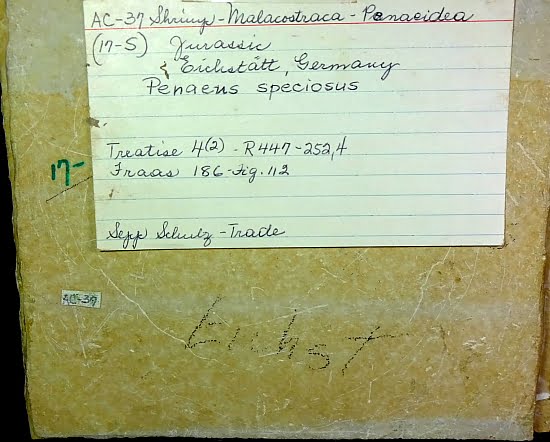 AC-37 Shrimp-Malacostraca-Penaeidea
(17-S) Jurassic
Eichstätt, Germany
Penaeus speciosus
Treatise 4(2) - R447-252,4
Fraas 186-Fig. 112
Sepp Schulz - Trade
17-
AC-37
Eichst